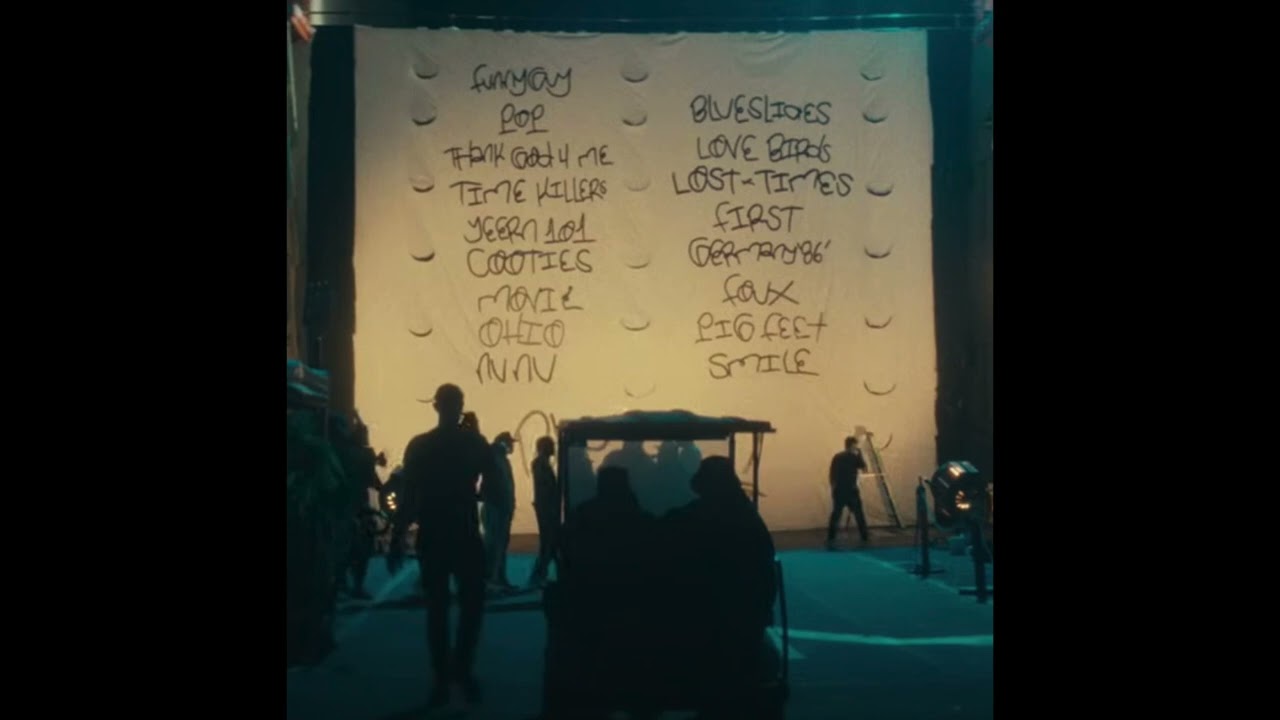 funnyGuy
POP
THANK GOD 4 ME
TIME KILLERS
YEERN 101
COOTIES
MOVIE
OHIO
NUNU
BLUESLIDES
LOVE BIRDS
LOST-TIMES
fIRST
GERMANY'86'
foux
PIG fEEt
SMILE